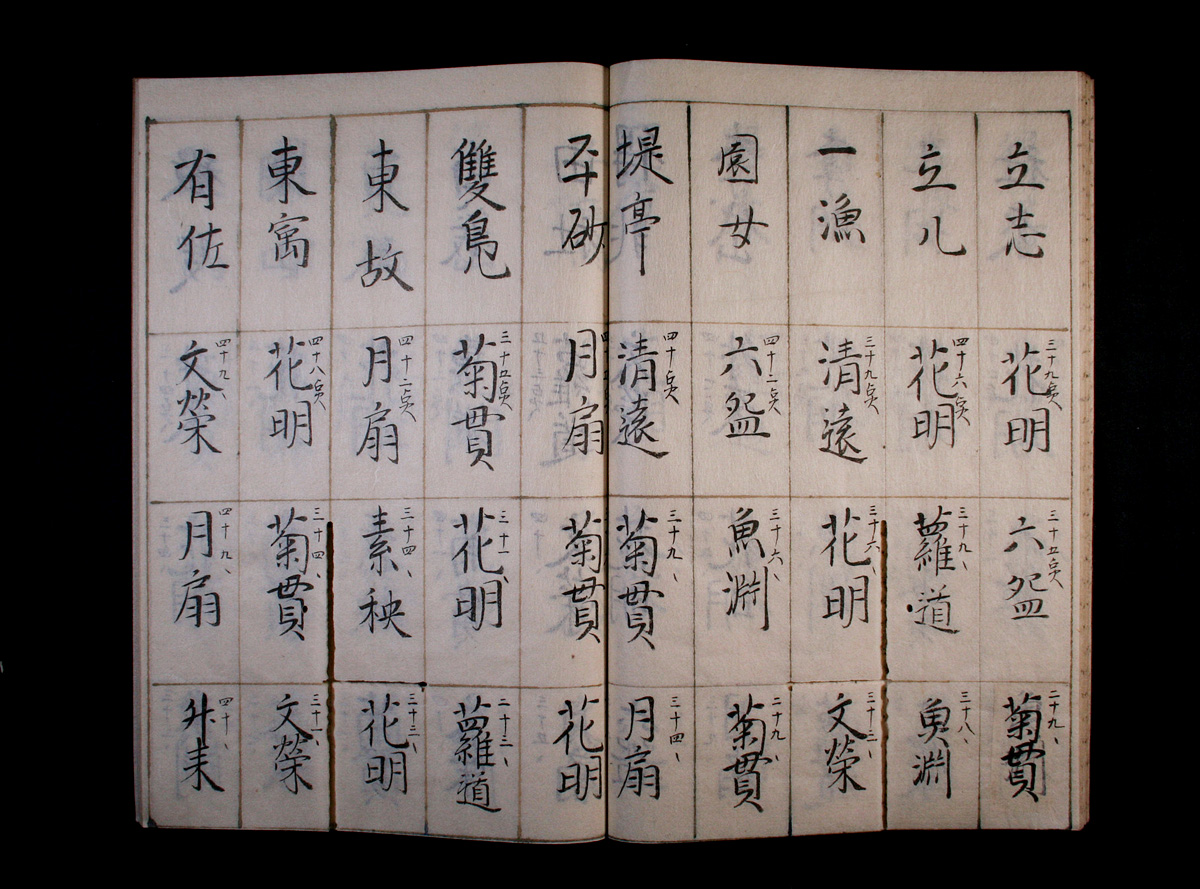 立志
三十九点
花明
三十五点
六盌
二十九、
菊貫
立几
四十六点
花明
三十九、
蘿道
三十八、
魚淵
一漁
三十九点
清遠
三十六、
花明
三十二、
文榮
園女
四十二点
六盌
三十六、
魚淵
二十九、
菊貫
堤亭
四十点
清遠
三十九、
菊貫
三十四、
月扇
平砂
月扇
菊貫
花明
雙鳬
三十五点
菊貫
三十一、
花明
二十三、
蘿道
東故
四十二点
月扇
三十四、
素秧
三十三、
花明
東寓
四十八点
花明
三十四、
菊貫
三十一、
文榮
有佐
四十九、
文榮
四十九、
月扇
四十、